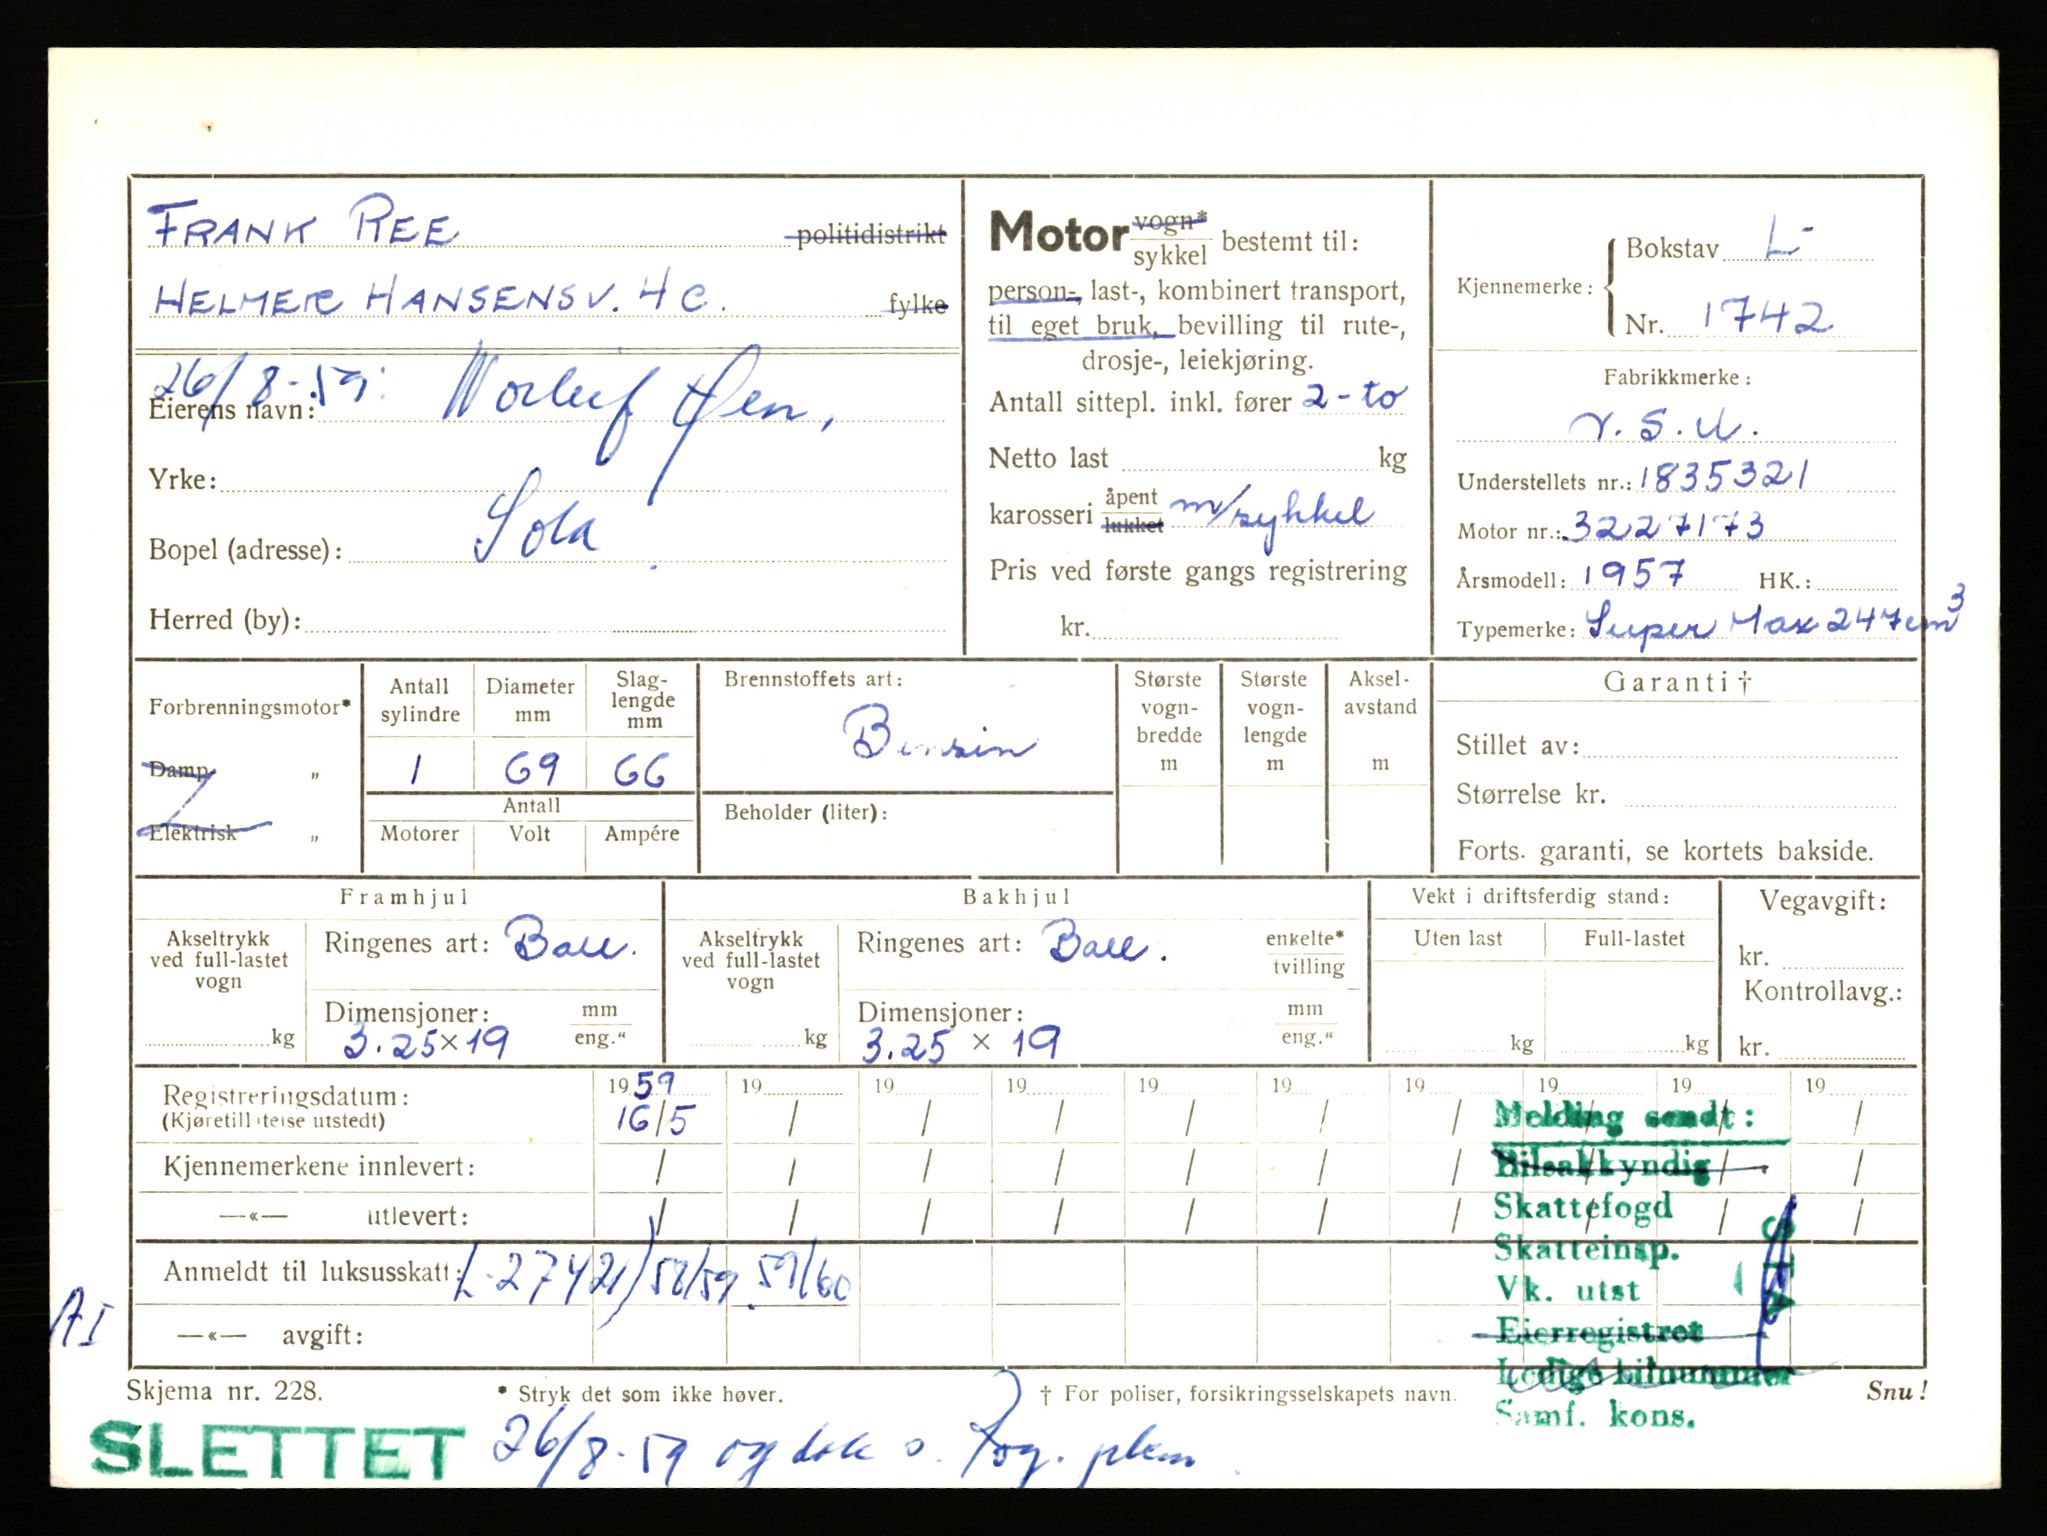 FRANK REE politidistrikt
HELMER HANSENSV. 4 C. fylke
26/8-59:
Eierens navn:
Yrke:
Bopel (adresse): Sola
Herred (by):
Motor vogn* / sykkel bestemt til:
person-, last-, kombinert transport,
til eget bruk, bevilling til rute-,
drosje-, leiekjøring.
Antall sittepl. inkl. fører 2-to
Netto last kg
karosseri åpent / lukket m/sykkel
Pris ved første gangs registrering
kr.
Kjennemerke: Bokstav L-
Nr. 1742
Fabrikkmerke:
N.S.U.
Understellets nr.: 1835321
Motor nr.: 3227173
Årsmodell: 1957 HK.:
Typemerke: Super Max 247cm3
Forbrenningsmotor*
Damp „
Elektrisk „
Antall sylindre
Diameter mm
Slag-
lengde
mm
1 69 66
Antall
Motorer Volt Ampére
Brennstoffets art:
Bensin
Beholder (liter):
Største
vogn-
bredde
m
Største
vogn-
lengde
m
Aksel-
avstand
m
Garanti †
Stillet av:
Størrelse kr.
Forts. garanti, se kortets bakside.
Framhjul
Akseltrykk
ved full-lastet
vogn
kg
Ringenes art: Ball.
Dimensjoner: mm
3.25×19 eng."
Bakhjul
Akseltrykk
ved full-lastet
vogn
kg
Ringenes art: Ball. enkelte*
tvilling
Dimensjoner: mm
3.25 × 19 eng."
Vekt i driftsferdig stand:
Uten last Full-lastet
kg kg
Vegavgift:
kr.
Kontrollavg.:
kr.
Registreringsdatum: 1959 19 19 19 19 19 19 19 19 19
(Kjøretillatelse utstedt) 16/5 / / / / / / / / /
Kjennemerkene innlevert: / / / / / / / / / /
—«— utlevert: / / / / / / / / / /
Anmeldt til luksusskatt: L-27421) 58/59 59/60
AI
—«— avgift:
Melding sendt:
Bilsakkyndig
Skattefogd
Skatteinsp.
Vk. utst
Eierregistret
Ledige bilnummer
Samf. kons.
Skjema nr. 228. * Stryk det som ikke høver. † For poliser, forsikringsselskapets navn. Snu!
SLETTET 26/8-59 og